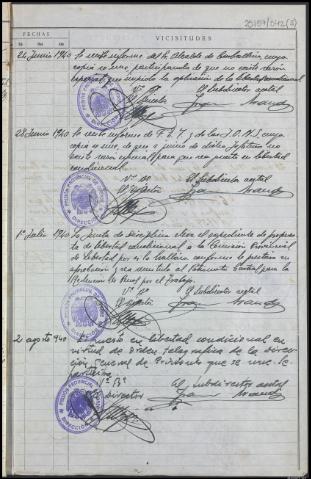 25197/042(3)
FECHAS
VICISITUDES
24 Junio 1940 Se recibe informe del Sr. Alcalde de cuya
copia se une, participando de que no existe razón
especial que impida la aplicación de la libertad condicional
Vº Bº El Subdirector acctal
El Director
28 Junio 1940 Se recibe informe de F.E.T. y de las J.O.N.S. cuya
copia se une, de que a juicio de dicha Jefatura no
existe razón especial para que sea puesto en libertad
condicional.
Vº Bº El Subdirector acctal
El Director
1º Julio 1940 La Junta de Disciplina eleva el expediente de propuesta
de libertad condicional a la Comisión Provincial
de Libertad por si lo hallara conforme le prestara su
aprobación y sea remitido al Patronato Central para la
Redención de Penas por el Trabajo.
Vº Bº El Subdirector acctal
El Director
2 agosto 940 Es puesto en libertad condicional en
virtud de orden telegráfica de la Dirección
General de Prisiones que se une.
Vº Bº El Subdirector acctal
El Director
PRISIÓN PROVINCIAL
DIRECCIÓN